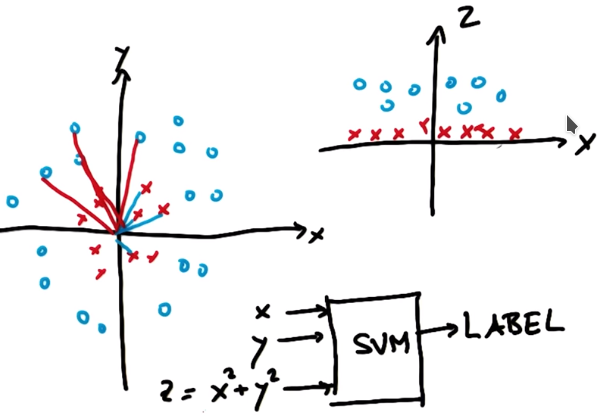 y
x
z
x
x
y
z = x² + y²
SVM
LABEL